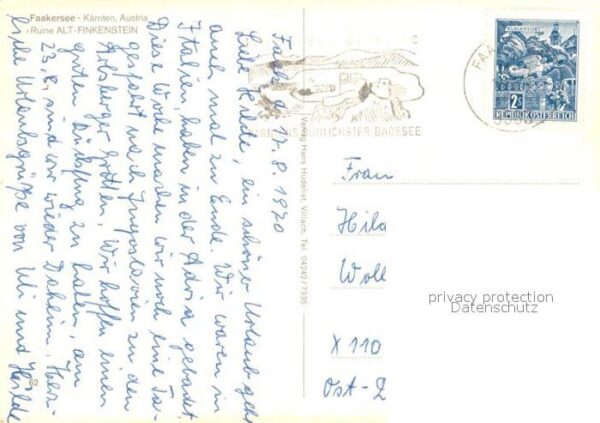 Faakersee - Kärnten, Austria
Ruine ALT-FINKENSTEIN
Faak, d. 17.8.1970
Liebe Hilde, ein schöner Urlaub geht
auch mal zu Ende. Wir waren in
Italien, haben in der Adria gebadet.
Diese Woche machen wir noch eine Fa-
gefahrt nach Jugoslavien zu den
Adelsberger Grotten. Wir hoffen einen
guten Rückflug zu haben, am
23.8. sind wir wieder Daheim. Herz-
liche Urlaubsgrüße von Uli und Hilde
62
Verlag Hans Hudelist, Villach, Tel. 04242/7335
KÄRNTENS SÜDLICHSTER BADESEE
FAA
KLAGENFURT
2S
REPUBLIK ÖSTERREICH
Frau
Hild
Woll
X 110
Ost-
privacy protection
Datenschutz